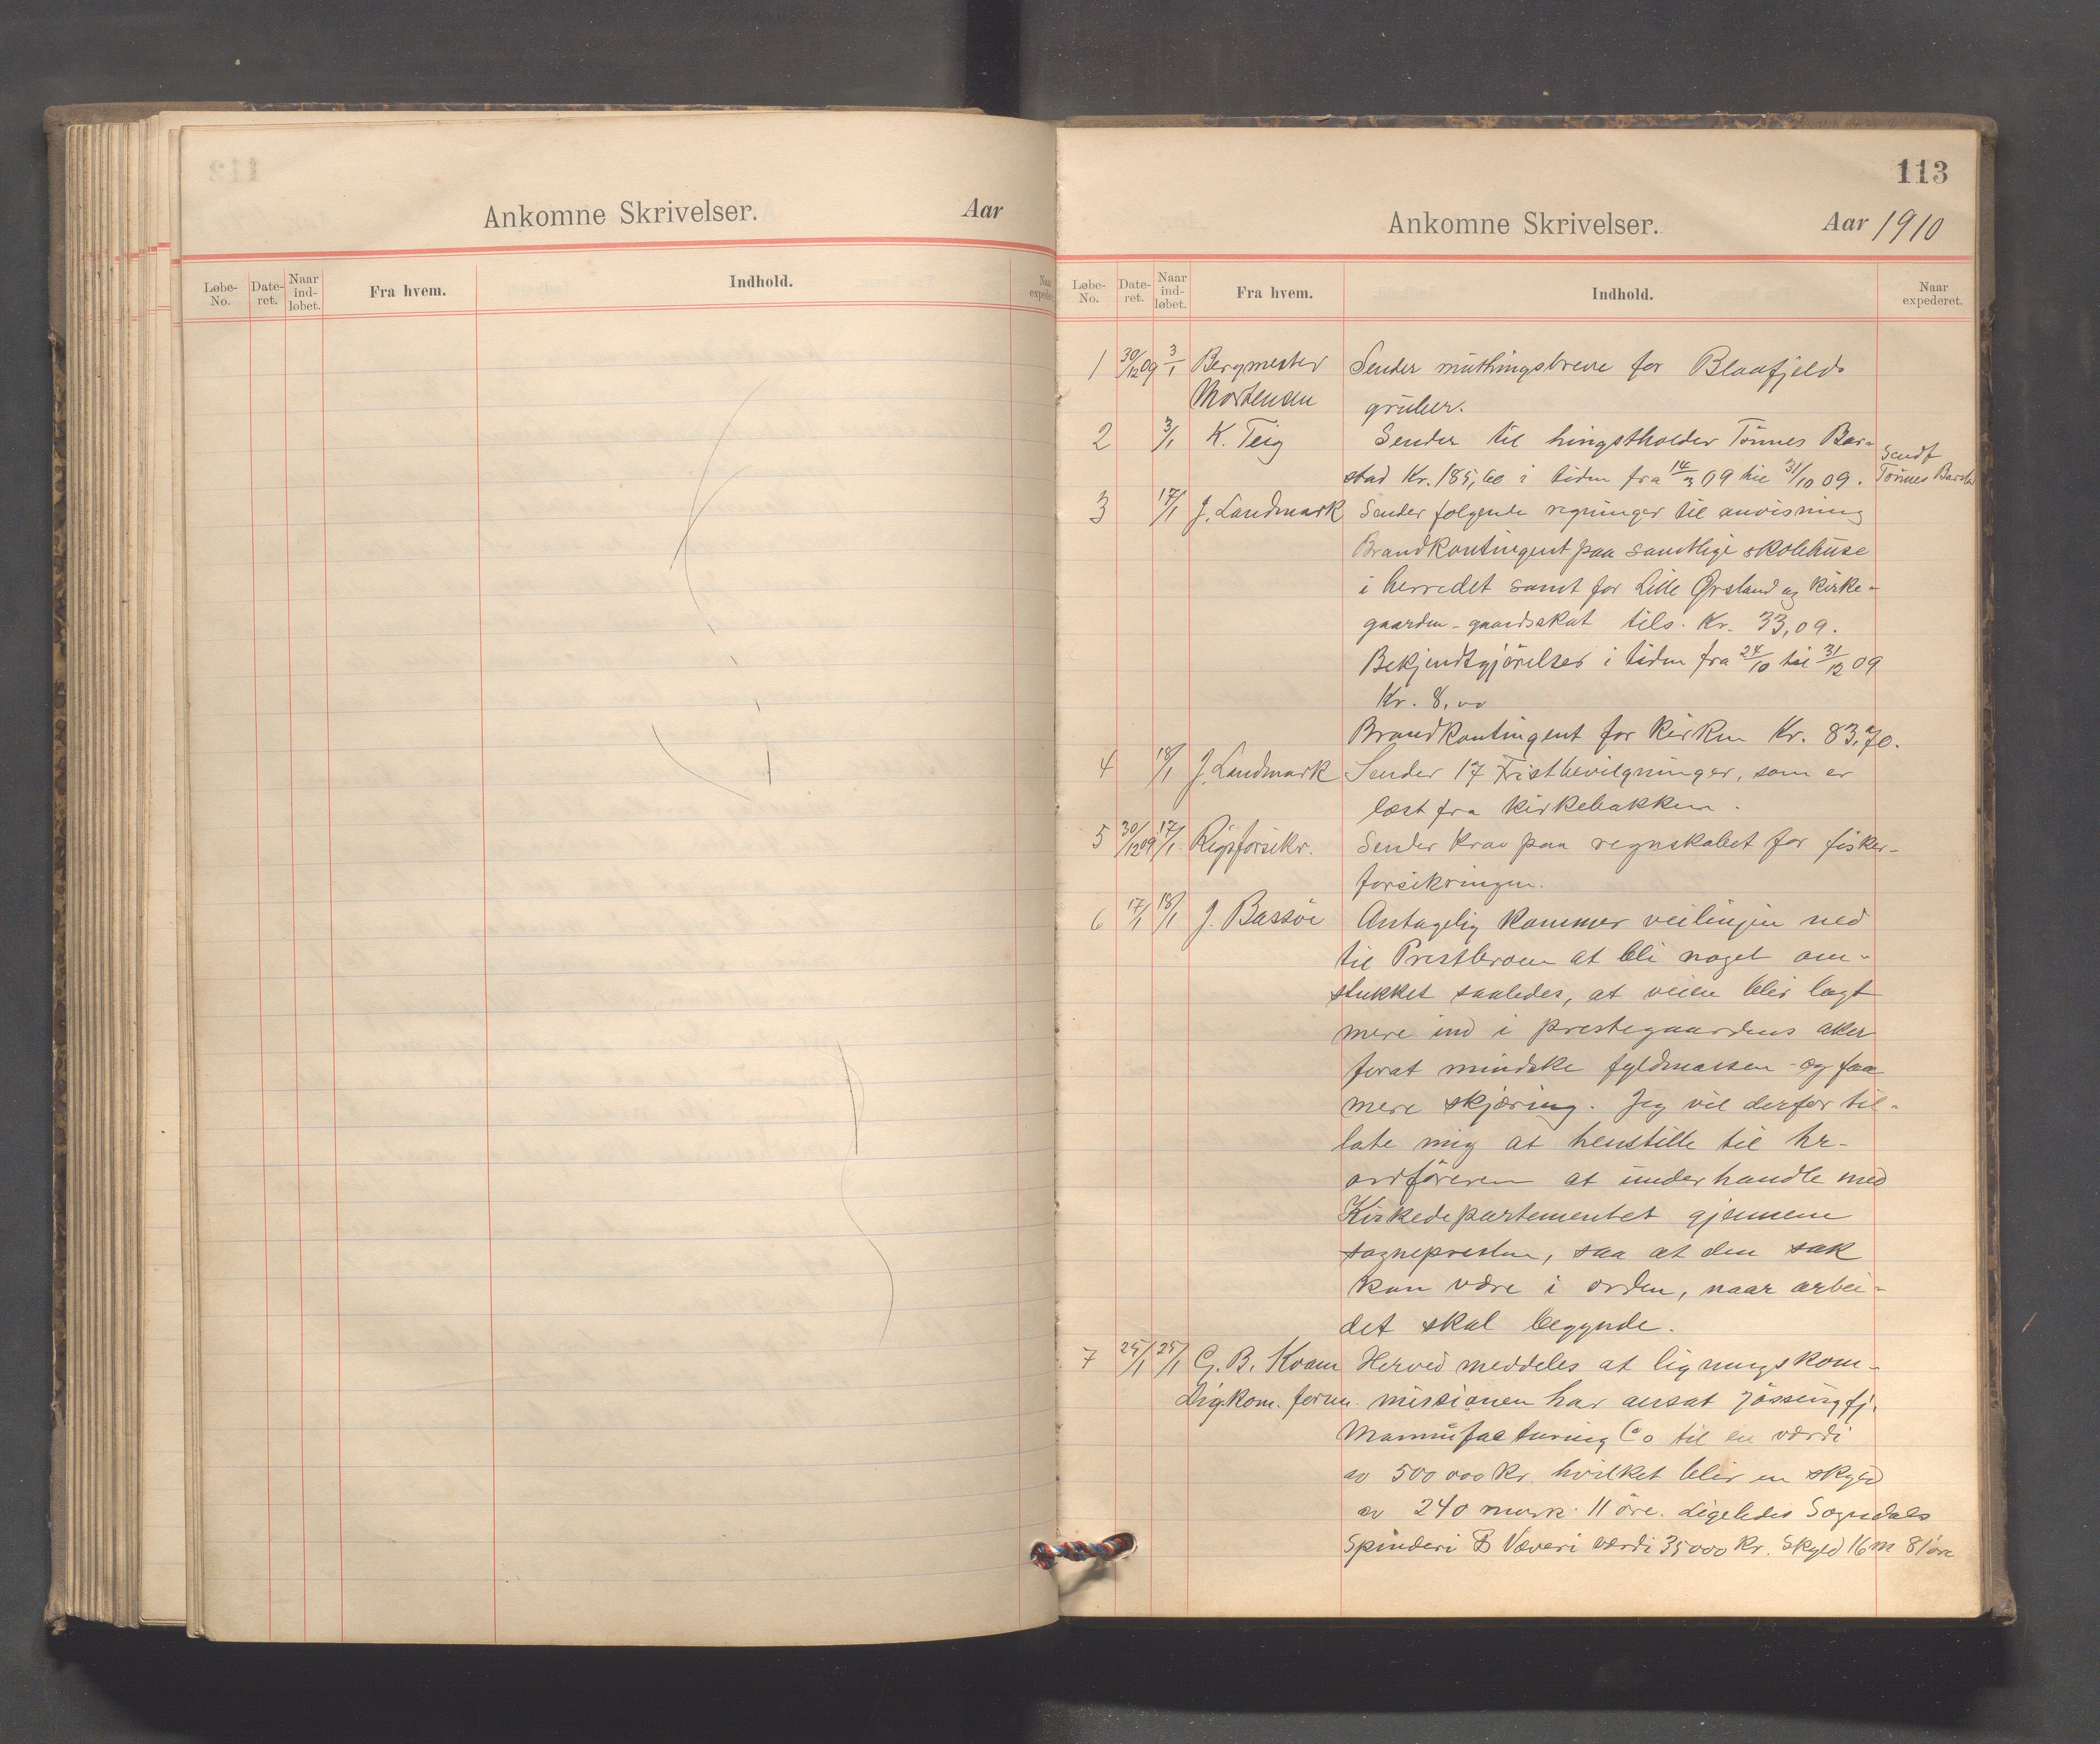 Ankomne Skrivelser. Aar
Løbe-No. Date-ret. Naar ind-løbet. Fra hvem. Indhold. Naar expederet.
113
Ankomne Skrivelser. Aar 1910
Løbe-No. Date-ret. Naar ind-løbet. Fra hvem. Indhold. Naar expederet.
1 30/12 09 3/1 Bergmester Sender muthingsbreve for Blaafjelds
Mortensen gruber.
2 3/1 K. Teig Sender til hingstholder Tönnes Bar-
stad Kr. 185,60 i tiden fra 14/3 09 til 31/10 09. Sendt Tönnes Barstad
3 17/1 J. Landmark Sender følgende regninger til anvisning
Brandkontingent paa samtlige skolehuse
i herredet samt for Lille Ørsland og kirke-
gaarden - gaardsskat tils. Kr. 33,09.
Bekjendtgjörelser i tiden fra 24/10 til 31/12 09
Kr. 8,00
Brandkontingent for kirken Kr. 83,70.
4 18/1 J. Landmark Sender 17 Fristbevilgninger, som er
læst fra kirkebakken.
5 30/12 09 17/1 Rigsforsikr. Sender krav paa regnskabet for fisker-
forsikringen.
6 17/1 18/1 J. Bassöe Antagelig kommer veilinjen ned
til Prestbroen at bli noget om-
stukket saaledes, at veien blir lagt
mere ind i prestegaardens aker
forat mindske fyldmassen og faa
mere skjæring. Jeg vil derfor til-
late mig at henstille til hr.
ordföreren at underhandle med
Kirkedepartementet gjennem
sognepresten, saa at den sak
kan være i orden, naar arbei-
det skal begynde.
7 25/1 25/1 G. B. Kvam Herved meddeles at ligningskom-
Lig.kom. form. missionen har ansat Jössingfj.
Mannufacturing Co til en værdi
av 500 000 Kr. hvilket blir en skyld
av 240 mark 11 öre. Ligeledes Sogndals
Spinderi & Væveri værdi 35000 Kr. Skyld 16 m 81 öre